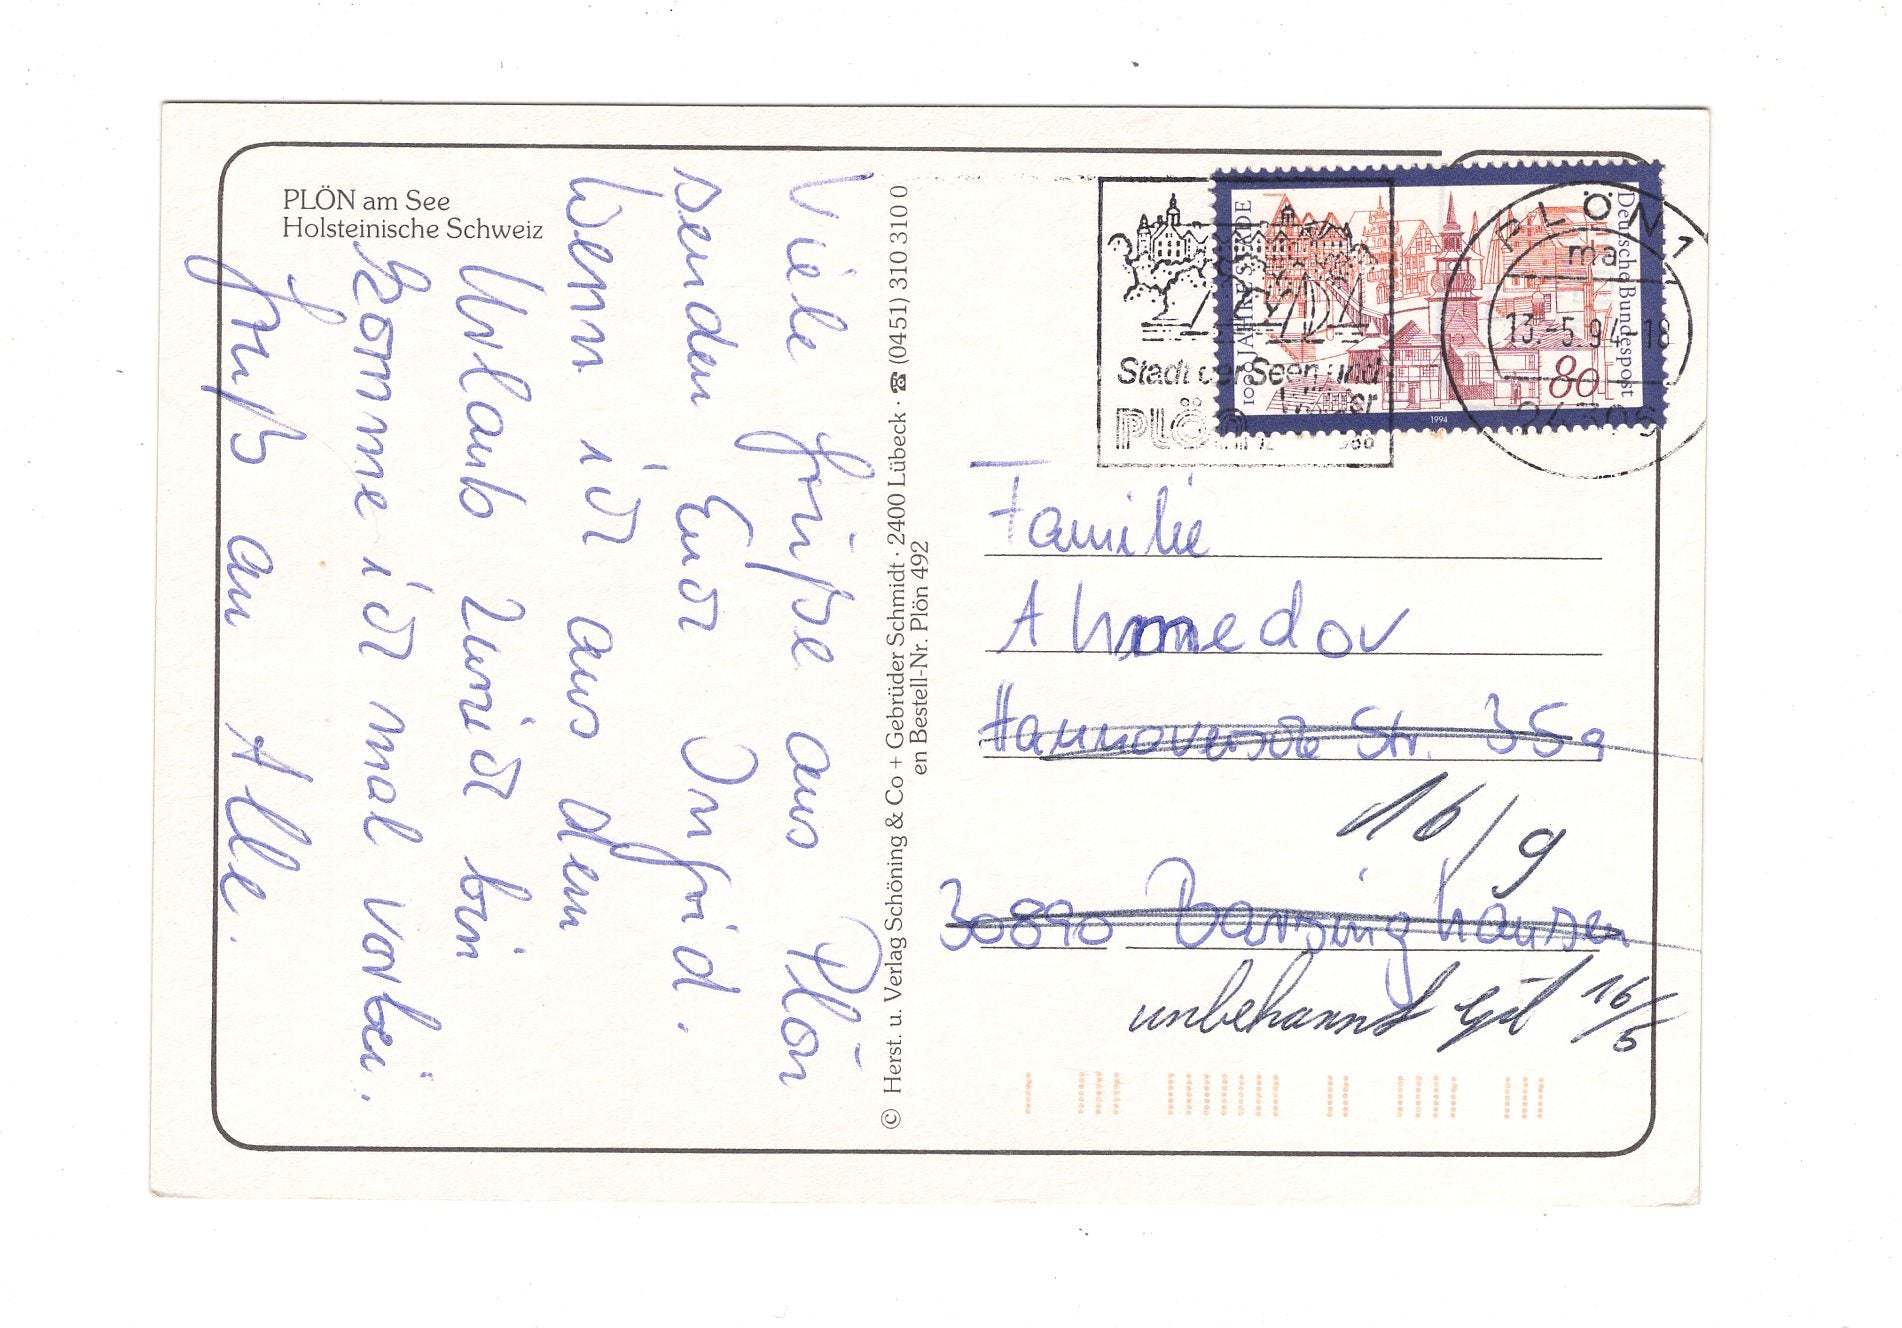 PLÖN am See
Holsteinische Schweiz
Viele Grüße aus Plön
senden Euch Ingrid.
Wenn ich aus dem
Urlaub zurück bin
komme ich mal vorbei.
Gruß an Alle.
© Herst. u. Verlag Schöning & Co + Gebrüder Schmidt · 2400 Lübeck · ☎ (0451) 310 310 0
en Bestell-Nr. Plön 492
Stadt der Seen und
Wälder
PLÖN
1000 JAHRE STADE
Deutsche Bundespost
80
1994
PLÖN 1
ma
13.-5.94-18
24306
Familie
Ahmedov
Hannoversche Str. 35a
16/9
30890 Barsinghausen
unbekannt 16/5